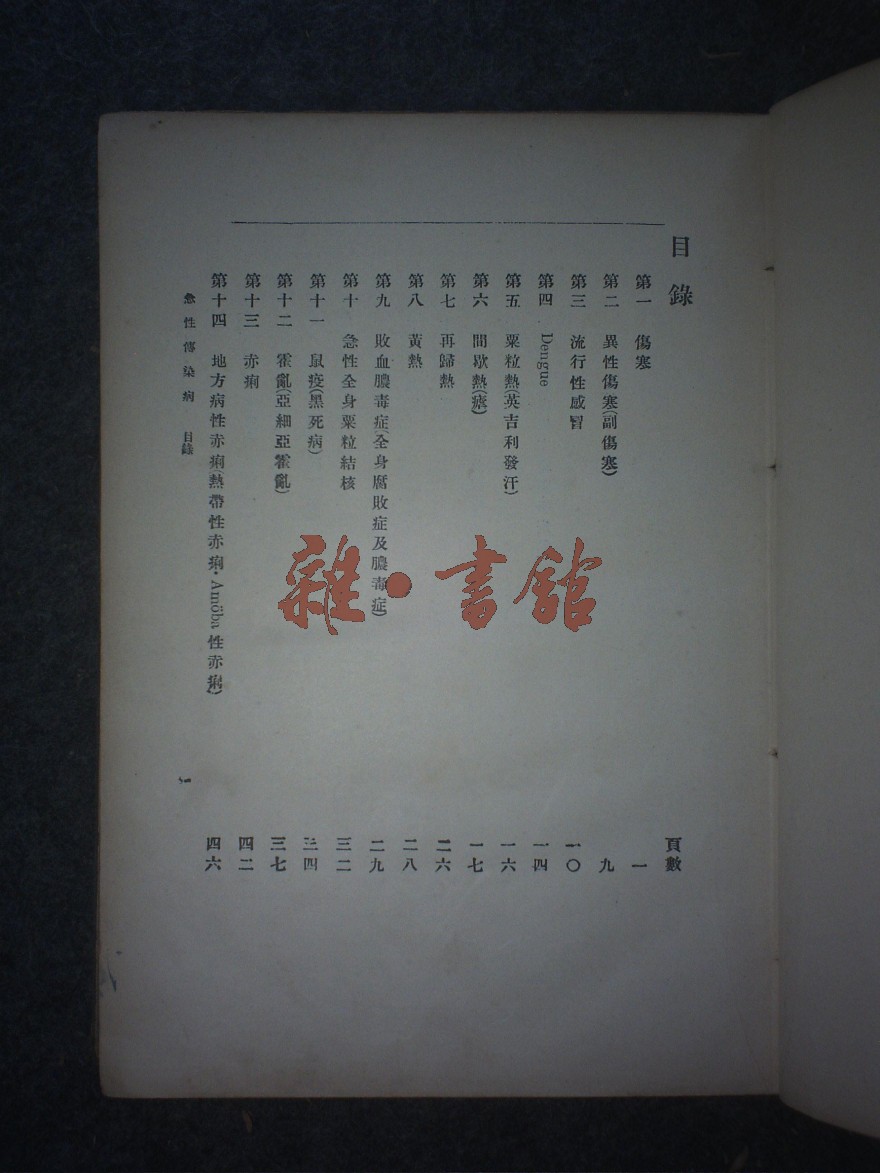 目錄
頁數
第一 傷寒 一
第二 異性傷寒(副傷寒) 九
第三 流行性感冒 一〇
第四 Dengue 一四
第五 粟粒熱(英吉利發汗) 一六
第六 間歇熱(瘧) 一七
第七 再歸熱 二六
第八 黃熱 二八
第九 敗血膿毒症(全身腐敗症及膿毒症) 二九
第十 急性全身粟粒結核 三二
第十一 鼠疫(黑死病) 三四
第十二 霍亂(亞細亞霍亂) 三七
第十三 赤痢 四二
第十四 地方病性赤痢(熱帶性赤痢·Amöba性赤痢) 四六
急性傳染病 目錄
雜·書館